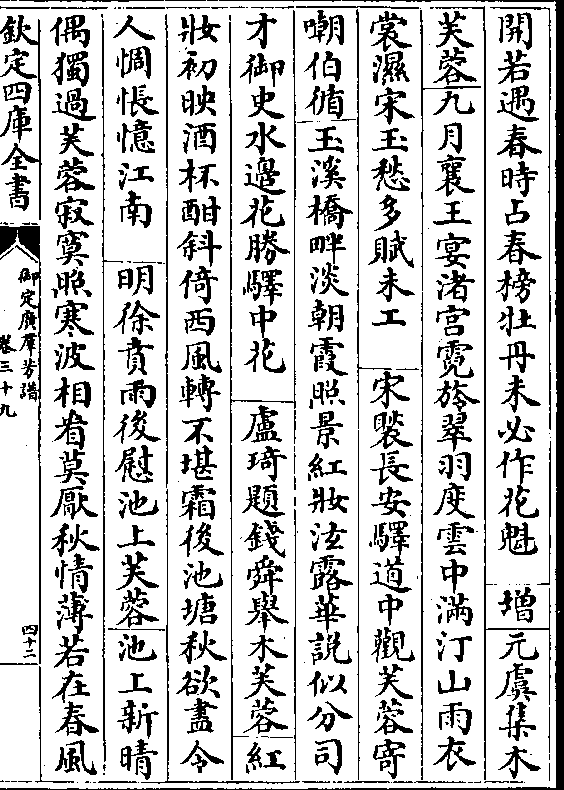 開若遇春時占春榜牡丹未必作花魁　增元虞集木
芙蓉九月襄王宴渚宫霓旍翠羽度雲中滿汀山雨衣
裳濕宋玉愁多賦未工　宋褧長安驛道中觀芙蓉寄
嘲伯循玉溪橋畔淡朝霞照景紅妝泫露華説似分司
才御史水邊花勝驛中花　盧琦題錢舜舉木芙蓉紅
妝初映酒杯酣斜倚西風轉不堪霜後池塘秋欲盡令
人惆悵憶江南　明徐賁雨後慰池上芙蓉池上新晴
偶獨過芙蓉寂寞照寒波相看莫厭秋情薄若在春風
欽定四庫全書
御定廣羣芳譜
卷三十九
四十二